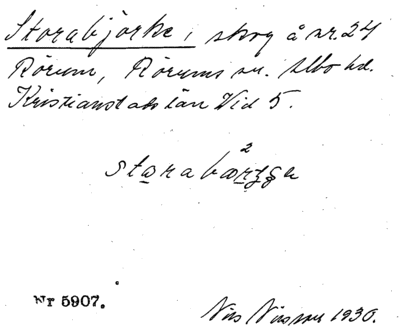 Storabjörke i skog å nr. 24
Rörum, Rörums sn. Albo hd.
Kristianstads län Vid 5.
2
Nr 5907.
Nils Nilsson 1930.